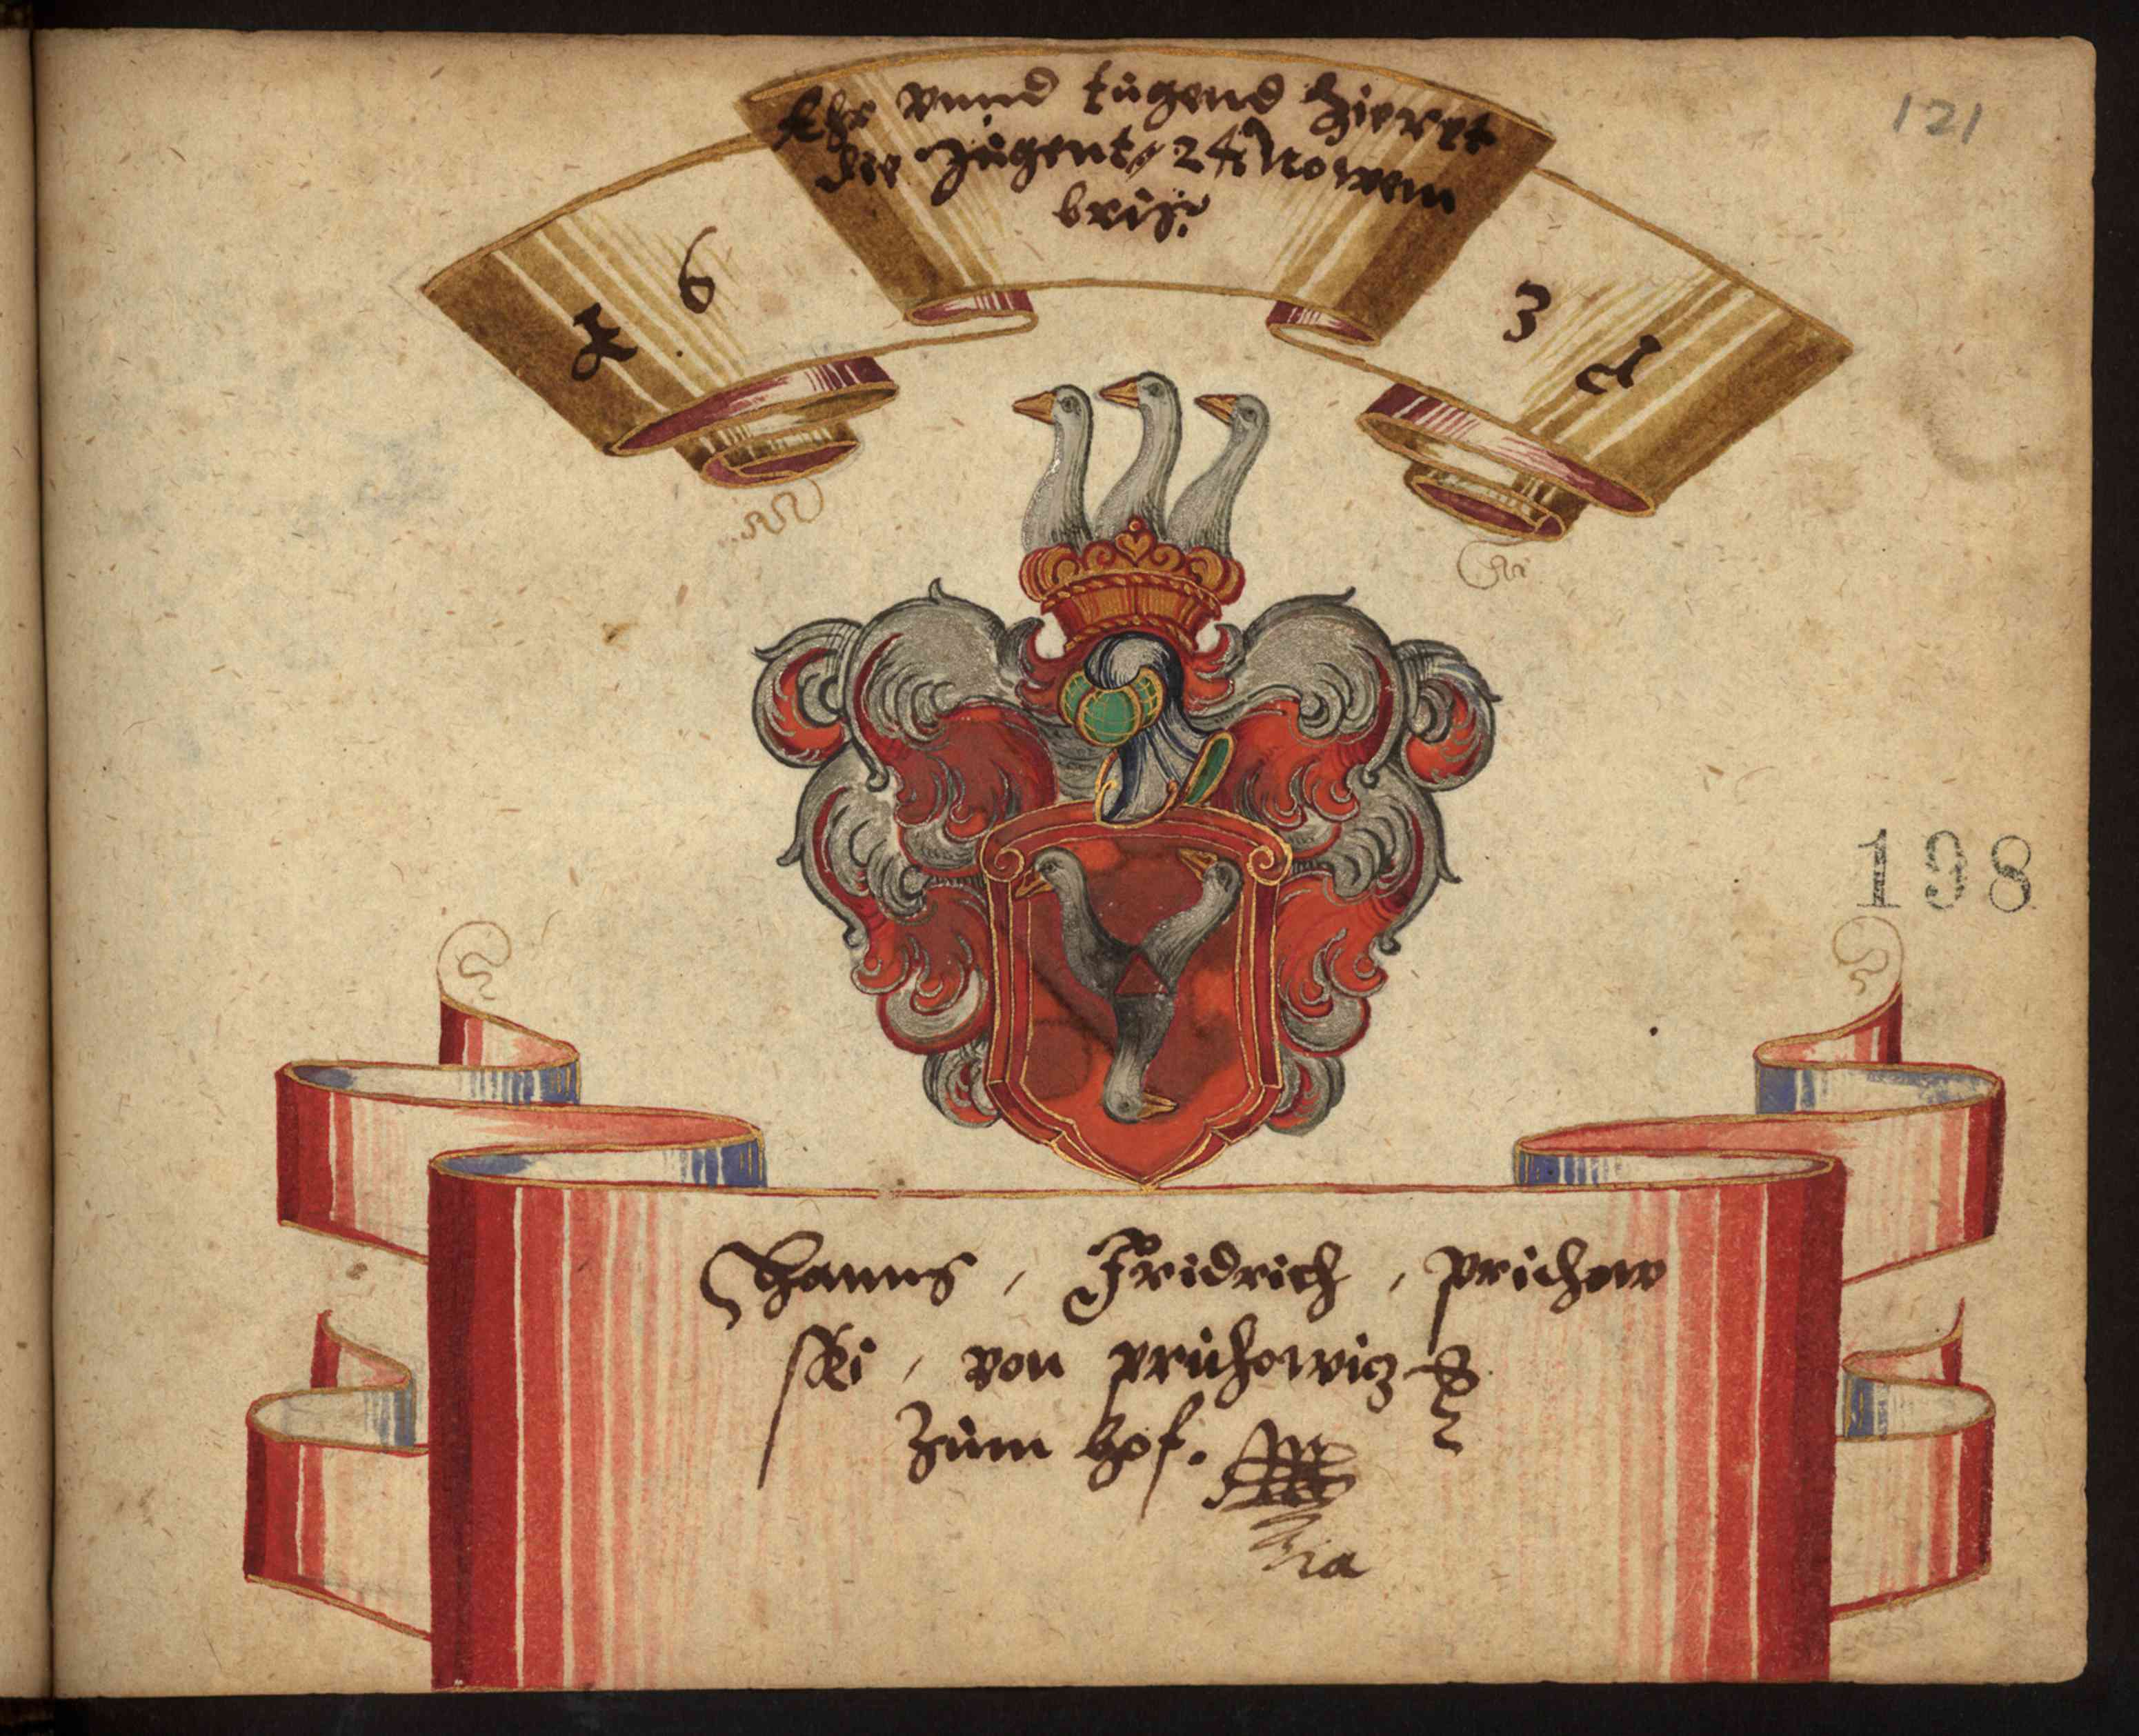 121
Ehr vnnd tugend Zieret
die Jugent 24 Novem
bris.
1 6 3 1
198
Hanns, Fridrich, prichow
ski, von prichowicz
Zum hof.